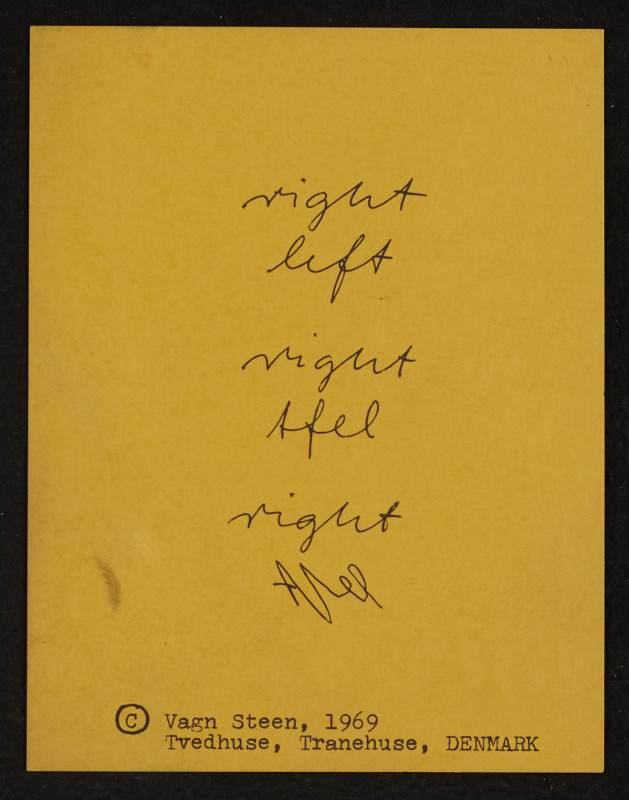 right
left
right
tfel
right
tfel
© Vagn Steen, 1969
Tvedhuse, Tranehuse, DENMARK